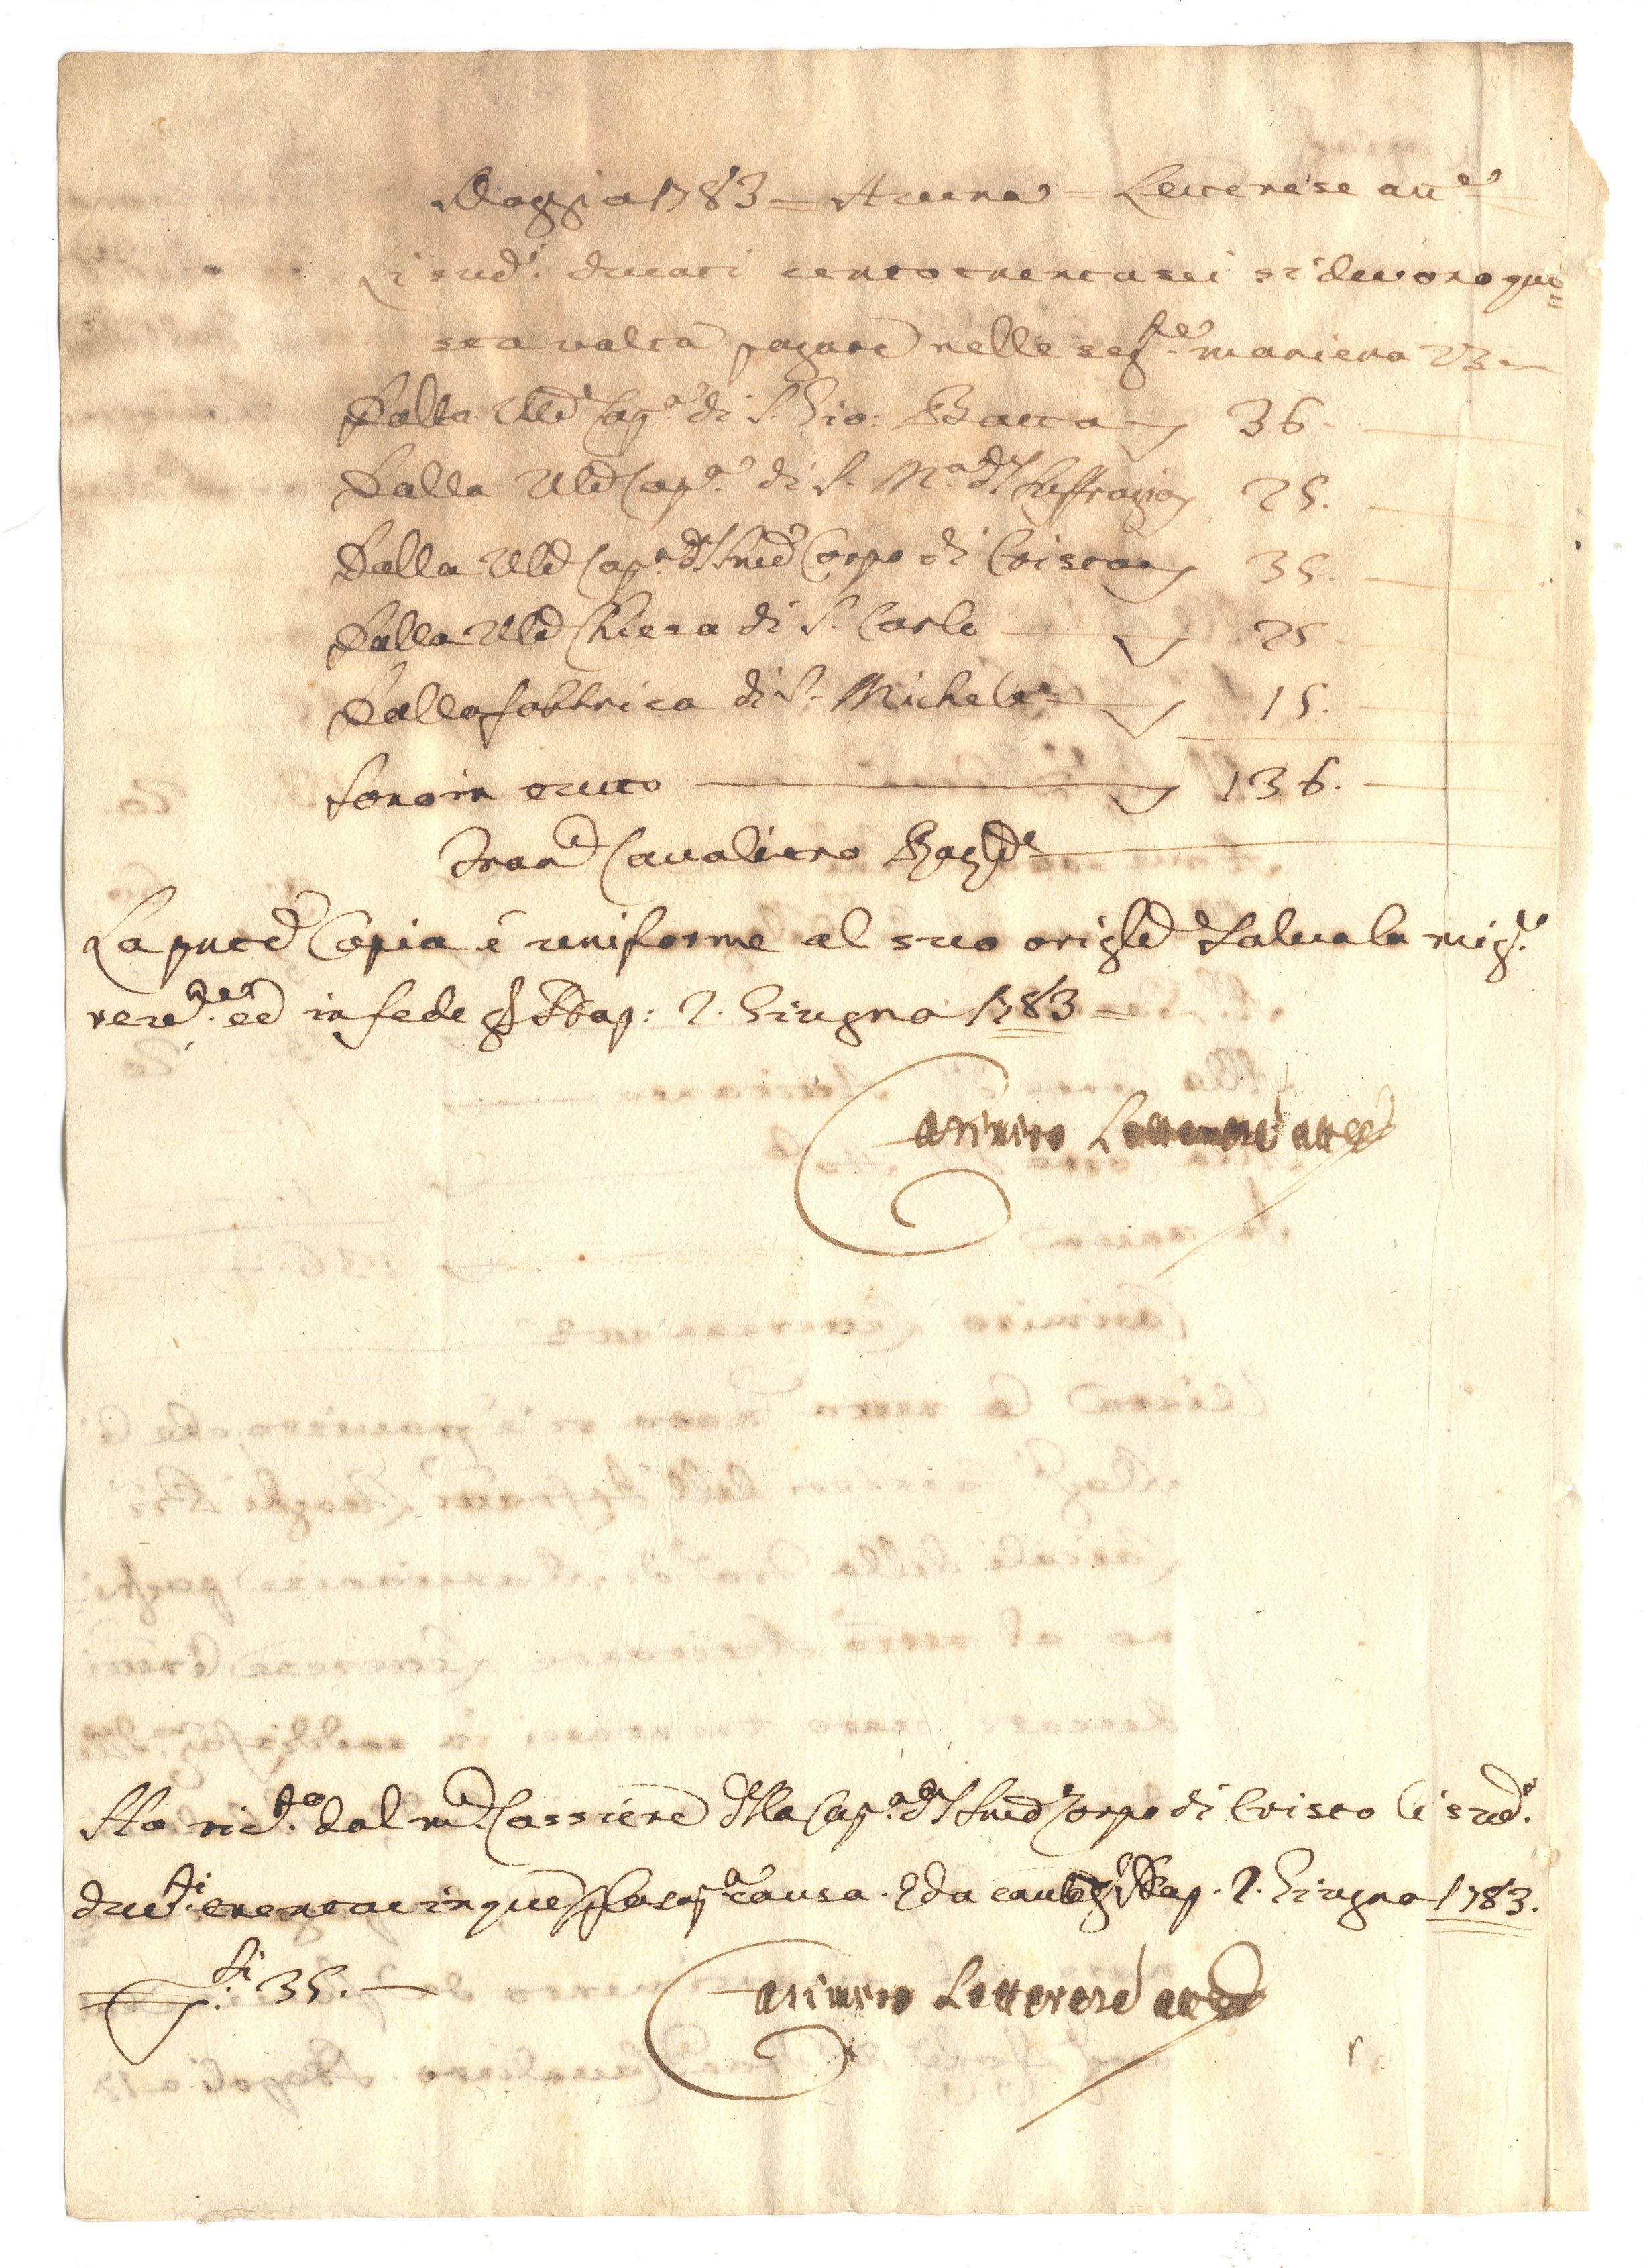 Maggio 1783 = Avena = Letterese att.e
Li sud.i ducati centotrentasei si devono que=
sta volta pagare nelle seg.te maniera
Dalla Ven. Cap.a di S. Gio: Batta 36.
Dalla Ven. Cap.a di S. M.a d. Suffragio 25.
Dalla Ven. Cap.a d. SSmo Corpo di Cristo 35.
Dalla Ven. Chiesa di S. Carlo 25
Dalla fabbrica di S. Michele 15.
Sono in tutto 136.
Fran. Cavaliero
La pnte Copia è uniforme al suo orig.le Salva la mig.re
ed in fede Nap: 2. Giugno 1783 =
Casimiro Letterese att.e
Ho ric.to dal m. Cassiere della Cap.a d. SSmo Corpo di Cristo li sud.i
duc.ti trentacinque causa. Nap. 2. Giugno 1783.
35.
Casimiro Letterese att.e